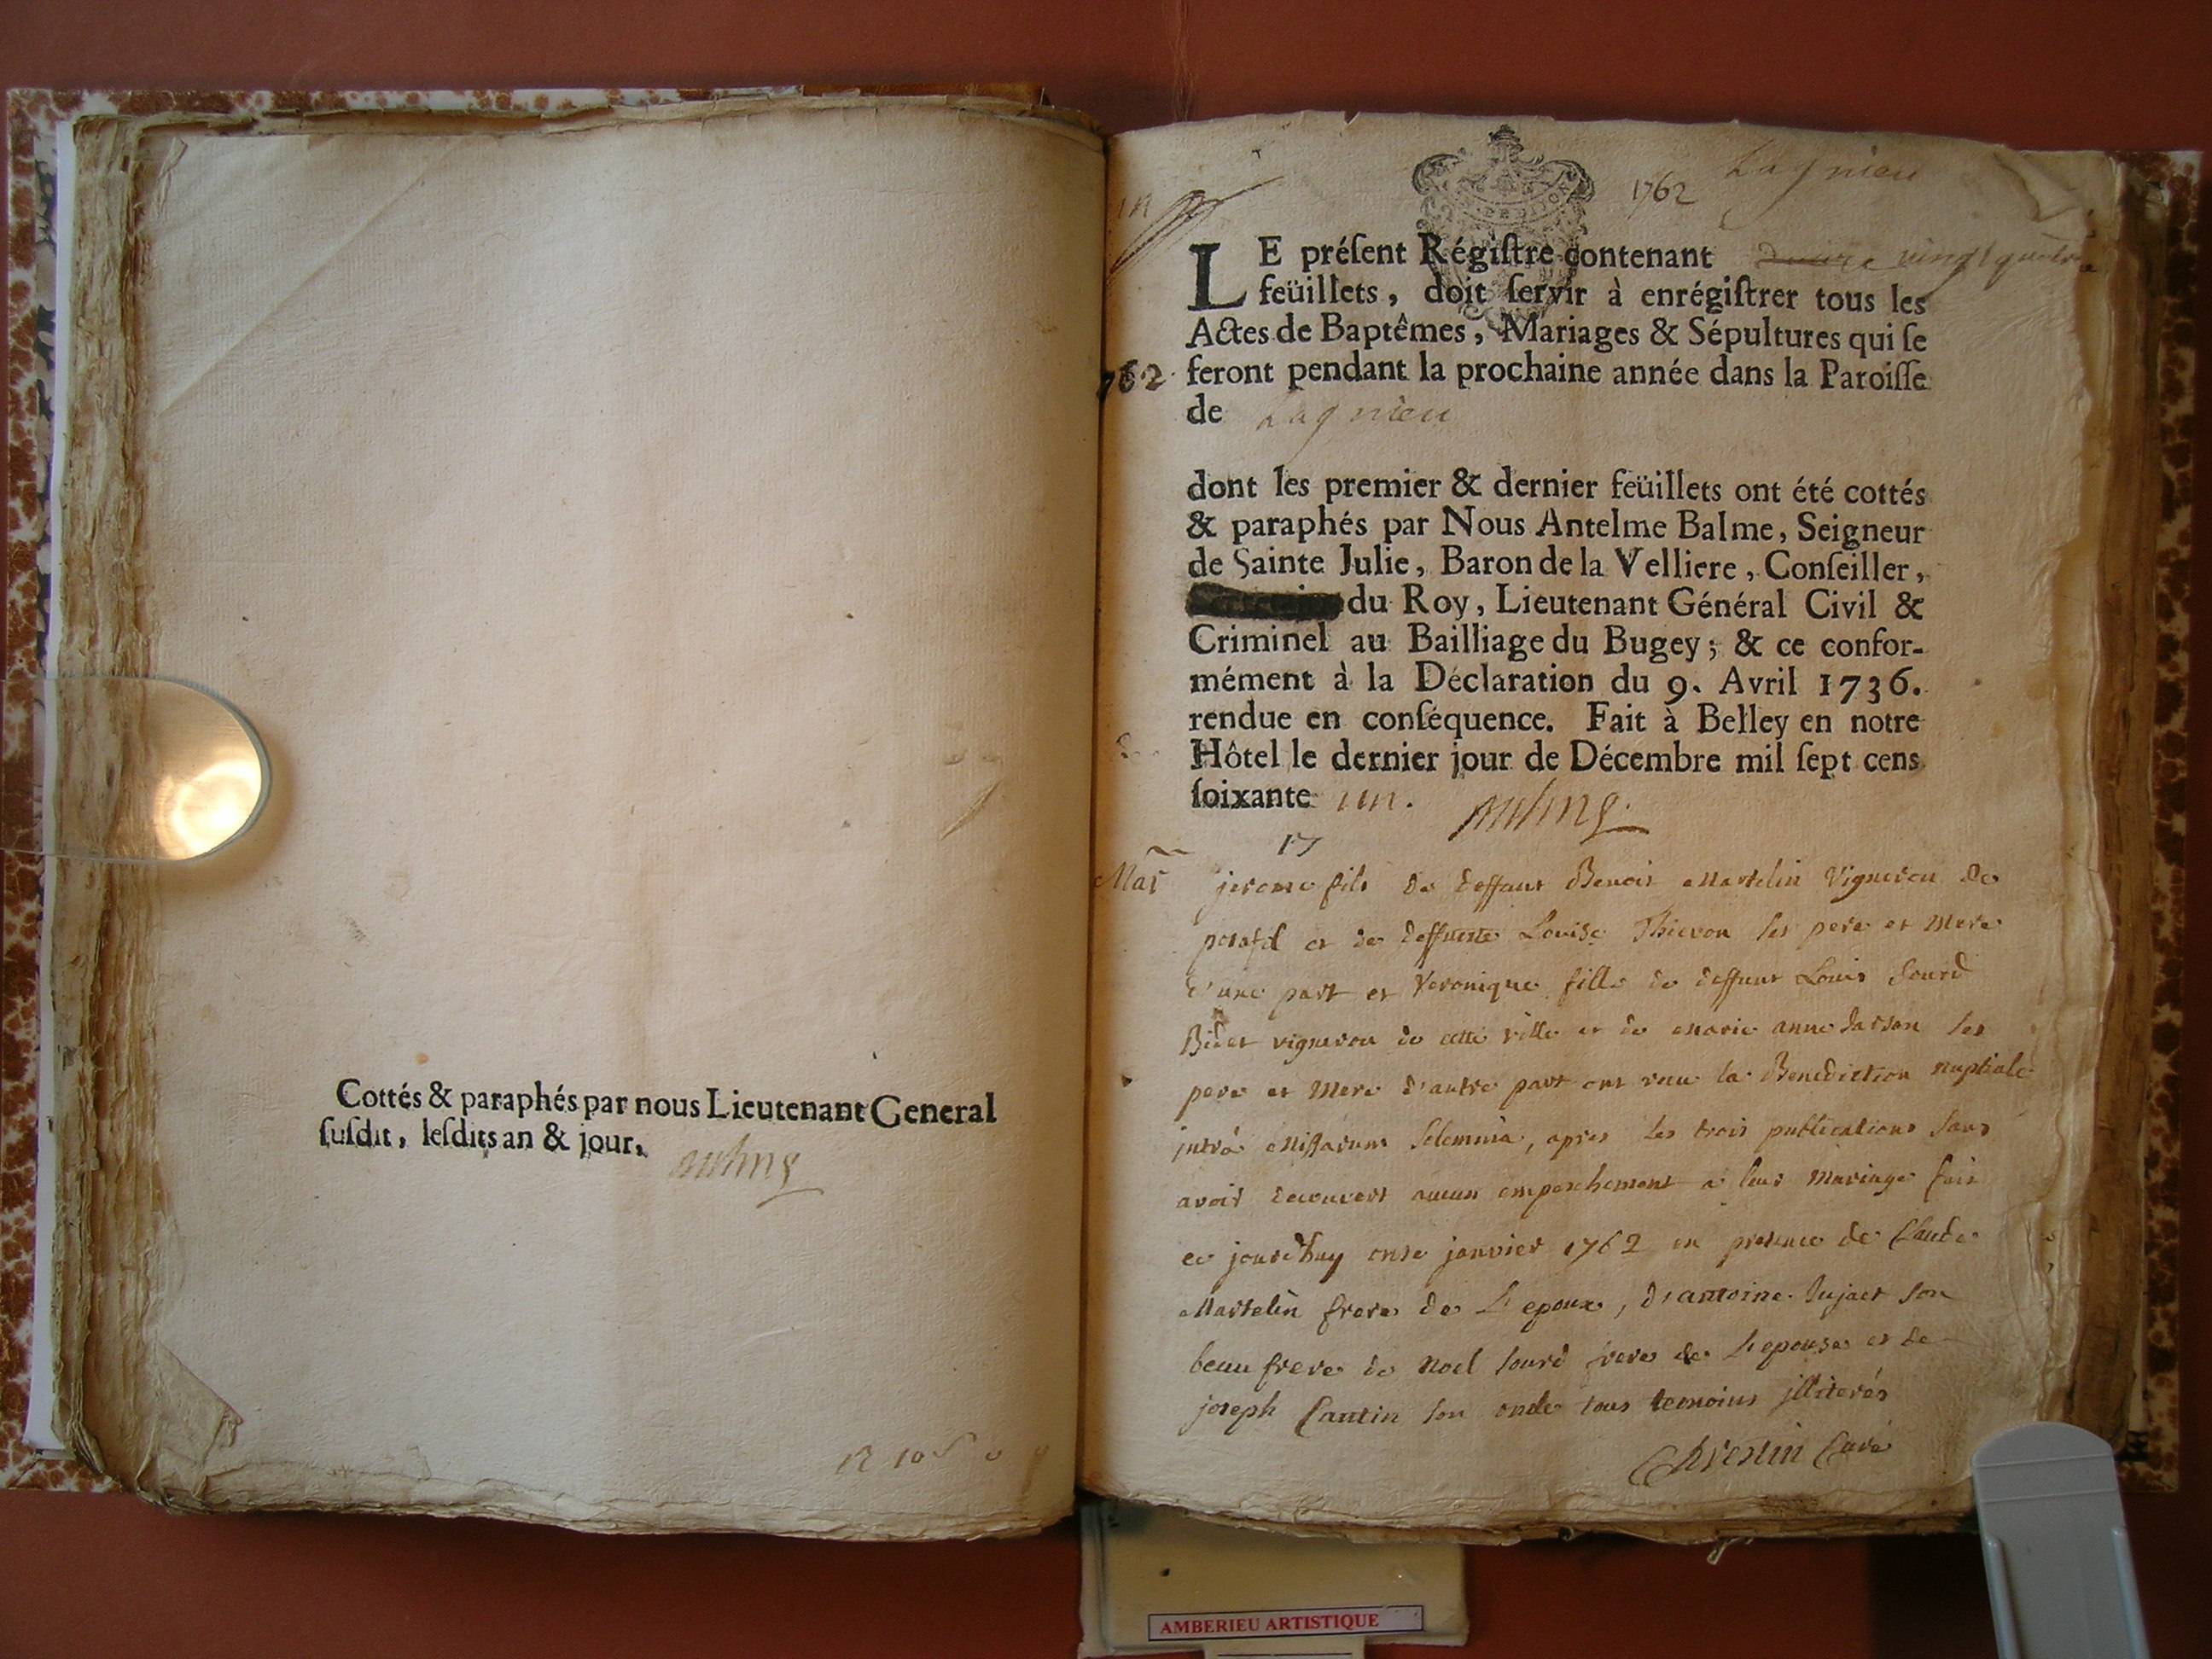 Cottés & paraphés par nous Lieutenant General
susdit, lesdits an & jour,
1762 Lagnieu
LE présent Régistre contenant douze vingt quatre
feüillets, doit servir à enrégistrer tous les
Actes de Baptêmes, Mariages & Sépultures qui se
762 feront pendant la prochaine année dans la Paroisse
de Lagnieu
dont les premier & dernier feüillets ont été cottés
& paraphés par Nous Antelme Balme, Seigneur
de Sainte Julie, Baron de la Velliere, Conseiller,
du Roy, Lieutenant Général Civil &
Criminel au Bailliage du Bugey; & ce confor-
mément à la Déclaration du 9. Avril 1736.
rendue en conséquence. Fait à Belley en notre
Hôtel le dernier jour de Décembre mil sept cens
soixante un.
17
Mar jerome fils de deffunt Benoit Martelin Vigneron de
et de deffunte Louise Thievon ses pere et Mere
d'une part et Veronique fille de deffunt Louis Sourd
Bidet vigneron de cette ville et de marie anne ses
pere et Mere d'autre part ont recu la Benediction nuptiale
intrà Missarum Solemnia, apres les trois publications sans
avoir decouvert aucun empeschement a leur Mariage fait
ce jourdhuy onse janvier 1762 en presence de Claude
Martelin frere de L'epoux, d'antoine Sujaet son
beau frere de Noel Sourd frere de L'epouse et de
joseph Cantin son oncle tous temoins jlliterés
Curé
AMBERIEU ARTISTIQUE